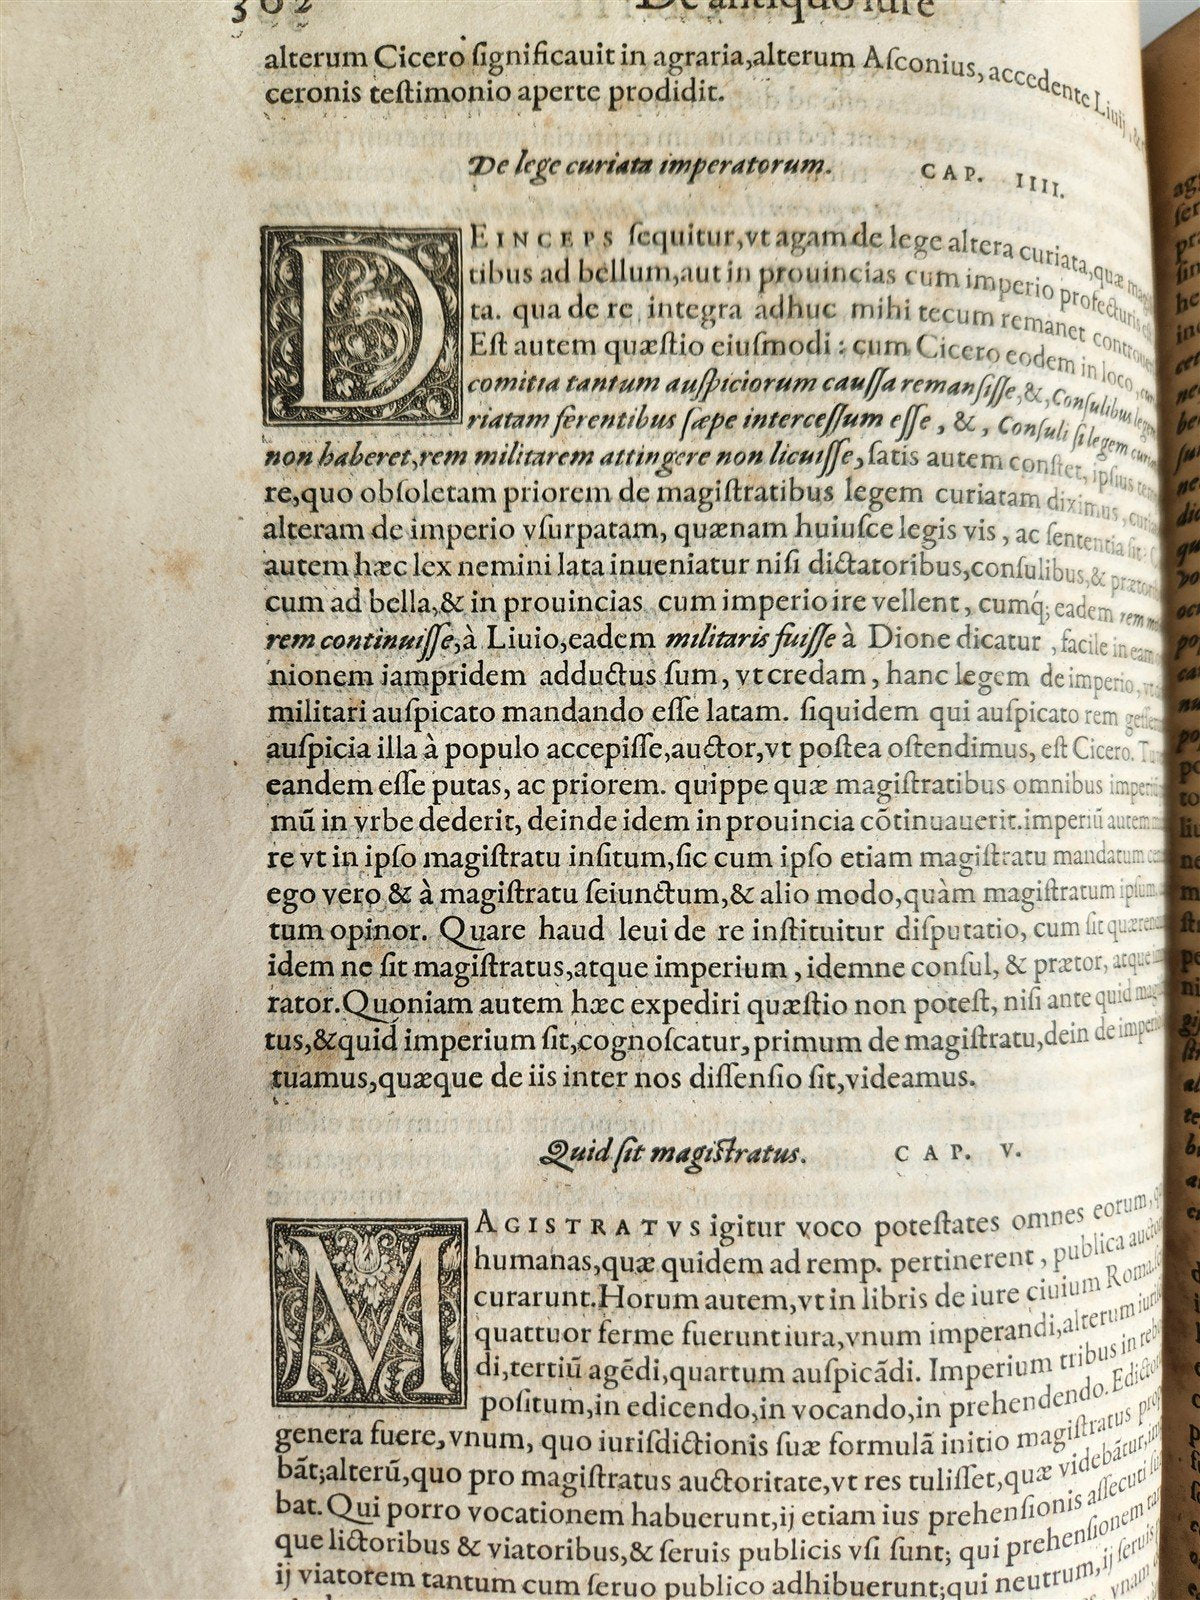 362 De antiquo iure
alterum Cicero ſignificauit in agraria,alterum Aſconius, accedente Liuij,
ceronis teſtimonio aperte prodidit.
De lege curiata imperatorum. CAP. IIII.
DEINCEPS ſequitur,vt agam de lege altera curiata,quæ
tibus ad bellum,aut in prouincias cum imperio profecturis
ta. qua de re integra adhuc mihi tecum remanet
Eſt autem quæſtio eiuſmodi : cum Cicero eodem in loco,
comitia tantum auſpiciorum cauſſa remanſiſſe,&, Conſulibus
riatam ferentibus ſæpe interceſſum eſſe, &, Conſuli ſi legem
non haberet,rem militarem attingere non licuiſſe, ſatis autem conſtet, ipſius
re,quo obſoletam priorem de magiſtratibus legem curiatam diximus,
alteram de imperio vſurpatam, quænam huiuſce legis vis, ac ſententia ſit:
autem hæc lex nemini lata inueniatur niſi dictatoribus,conſulibus,&
cum ad bella,& in prouincias cum imperio ire vellent, cumq́; eadem rem
rem continuiſſe,à Liuio,eadem militaris fuiſſe à Dione dicatur, facile in eam
nionem iampridem adductus ſum, vt credam, hanc legem de imperio,
militari auſpicato mandando eſſe latam. ſiquidem qui auſpicato rem
auſpicia illa à populo accepiſſe,auctor,vt poſtea oſtendimus, eſt Cicero.
eandem eſſe putas, ac priorem. quippe quæ magiſtratibus omnibus
mũ in vrbe dederit, deinde idem in prouincia cõtinuauerit.imperiũ autem
re vt in ipſo magiſtratu inſitum,ſic cum ipſo etiam magiſtratu mandatum
ego vero & à magiſtratu ſeiunctum,& alio modo,quàm magiſtratum ipſum
tum opinor. Quare haud leui de re inſtituitur diſputatio, cum ſit
idem ne ſit magiſtratus,atque imperium, idemne conſul, & prætor, atque
rator.Quoniam autem hæc expediri quæſtio non poteſt, niſi ante quid
tus,&quid imperium ſit,cognoſcatur,primum de magiſtratu,dein de imperio
tuamus,quæque de iis inter nos diſſenſio ſit,videamus.
Quid ſit magiſtratus. CAP. V.
MAGISTRATVS igitur voco poteſtates omnes eorum,
humanas,quæ quidem ad remp. pertinerent, publica
curarunt.Horum autem,vt in libris de iure ciuium Roma.
quattuor ferme fuerunt iura,vnum imperandi,alterum
di,tertiũ agẽdi,quartum auſpicãdi. Imperium tribus in
poſitum,in edicendo,in vocando,in prehendendo.
genera fuere,vnum, quo iuriſdictionis ſuæ formulã initio magiſtratus
bãt;alterũ,quo pro magiſtratus auctoritate,vt res tuliſſet,quæ videbãtur,
bat. Qui porro vocationem habuerunt,ij etiam ius prehenſionis aſſecuti
que lictoribus & viatoribus,& ſeruis publicis vſi ſunt; qui prehenſionem
ij viatorem tantum cum ſeruo publico adhibuerunt;qui neutrum,ij ſeruis